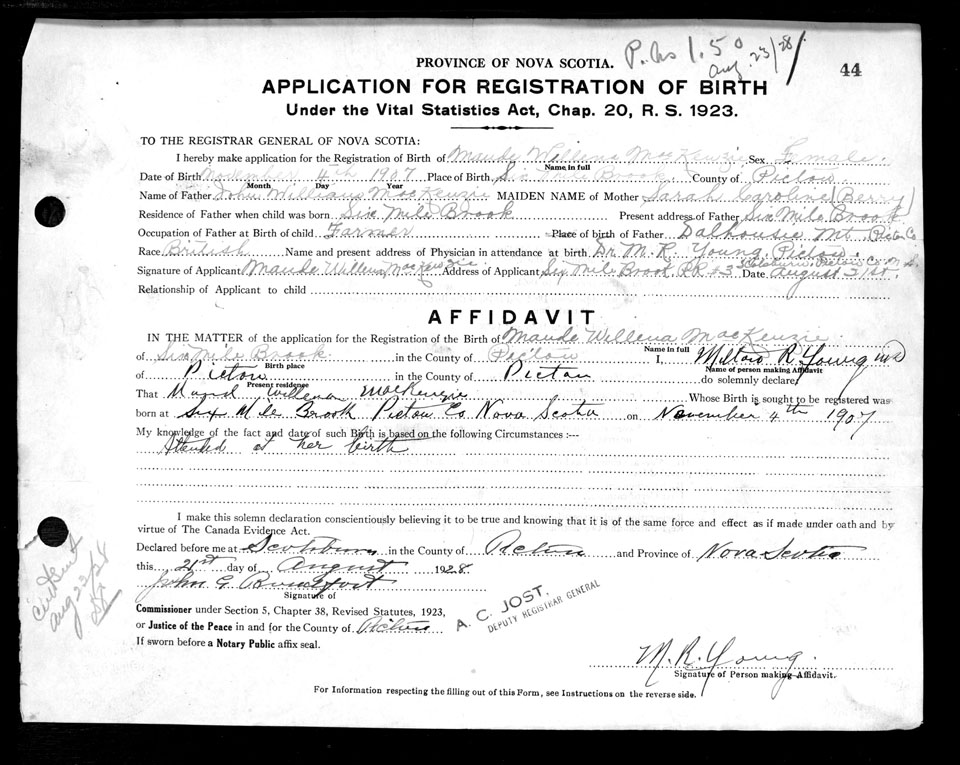 PROVINCE OF NOVA SCOTIA.
1.50
Aug. 23/28
44
APPLICATION FOR REGISTRATION OF BIRTH
Under the Vital Statistics Act, Chap. 20, R. S. 1923.
TO THE REGISTRAR GENERAL OF NOVA SCOTIA:
I hereby make application for the Registration of Birth of Maude Willena MacKenzie Sex Female.
Name in full
Date of Birth November 4th 1907 Place of Birth Six Mile Brook County of Pictou
Month Day Year
Name of Father John William MacKenzie MAIDEN NAME of Mother Sarah Caroline (Berry)
Residence of Father when child was born Six Mile Brook Present address of Father Six Mile Brook
Occupation of Father at Birth of child Farmer Place of birth of Father Dalhousie Mt. Pictou Co
Race British Name and present address of Physician in attendance at birth Dr. M. R. Young, Pictou.
Signature of Applicant Maude Willena MacKenzie Address of Applicant Six Mile Brook Pictou Co. N.S. Date August 21st.
Relationship of Applicant to child
AFFIDAVIT
IN THE MATTER of the application for the Registration of the Birth of Maude Willena MacKenzie
Name in full
of Six Mile Brook in the County of Pictou I, R. Young MD
Birth place Name of person making Affidavit
of Pictou in the County of Pictou do solemnly declare
Present residence
That Maud Willena MacKenzie Whose Birth is sought to be registered was
born at Six Mile Brook Pictou Co Nova Scotia on November 4th 1907
My knowledge of the fact and date of such Birth is based on the following Circumstances :--
Attended at her birth
I make this solemn declaration conscientiously believing it to be true and knowing that it is of the same force and effect as if made under oath and by
virtue of The Canada Evidence Act.
Declared before me at Scotsburn in the County of Pictou and Province of Nova Scotia
this 21st day of August 1928.
John G
Signature of
Commissioner under Section 5, Chapter 38, Revised Statutes, 1923,
or Justice of the Peace in and for the County of Pictou
If sworn before a Notary Public affix seal.
A. C. JOST.
DEPUTY REGISTRAR GENERAL
M. R. Young.
Signature of Person making Affidavit.
For Information respecting the filling out of this Form, see Instructions on the reverse side.
Cert Sent
Aug 23/28